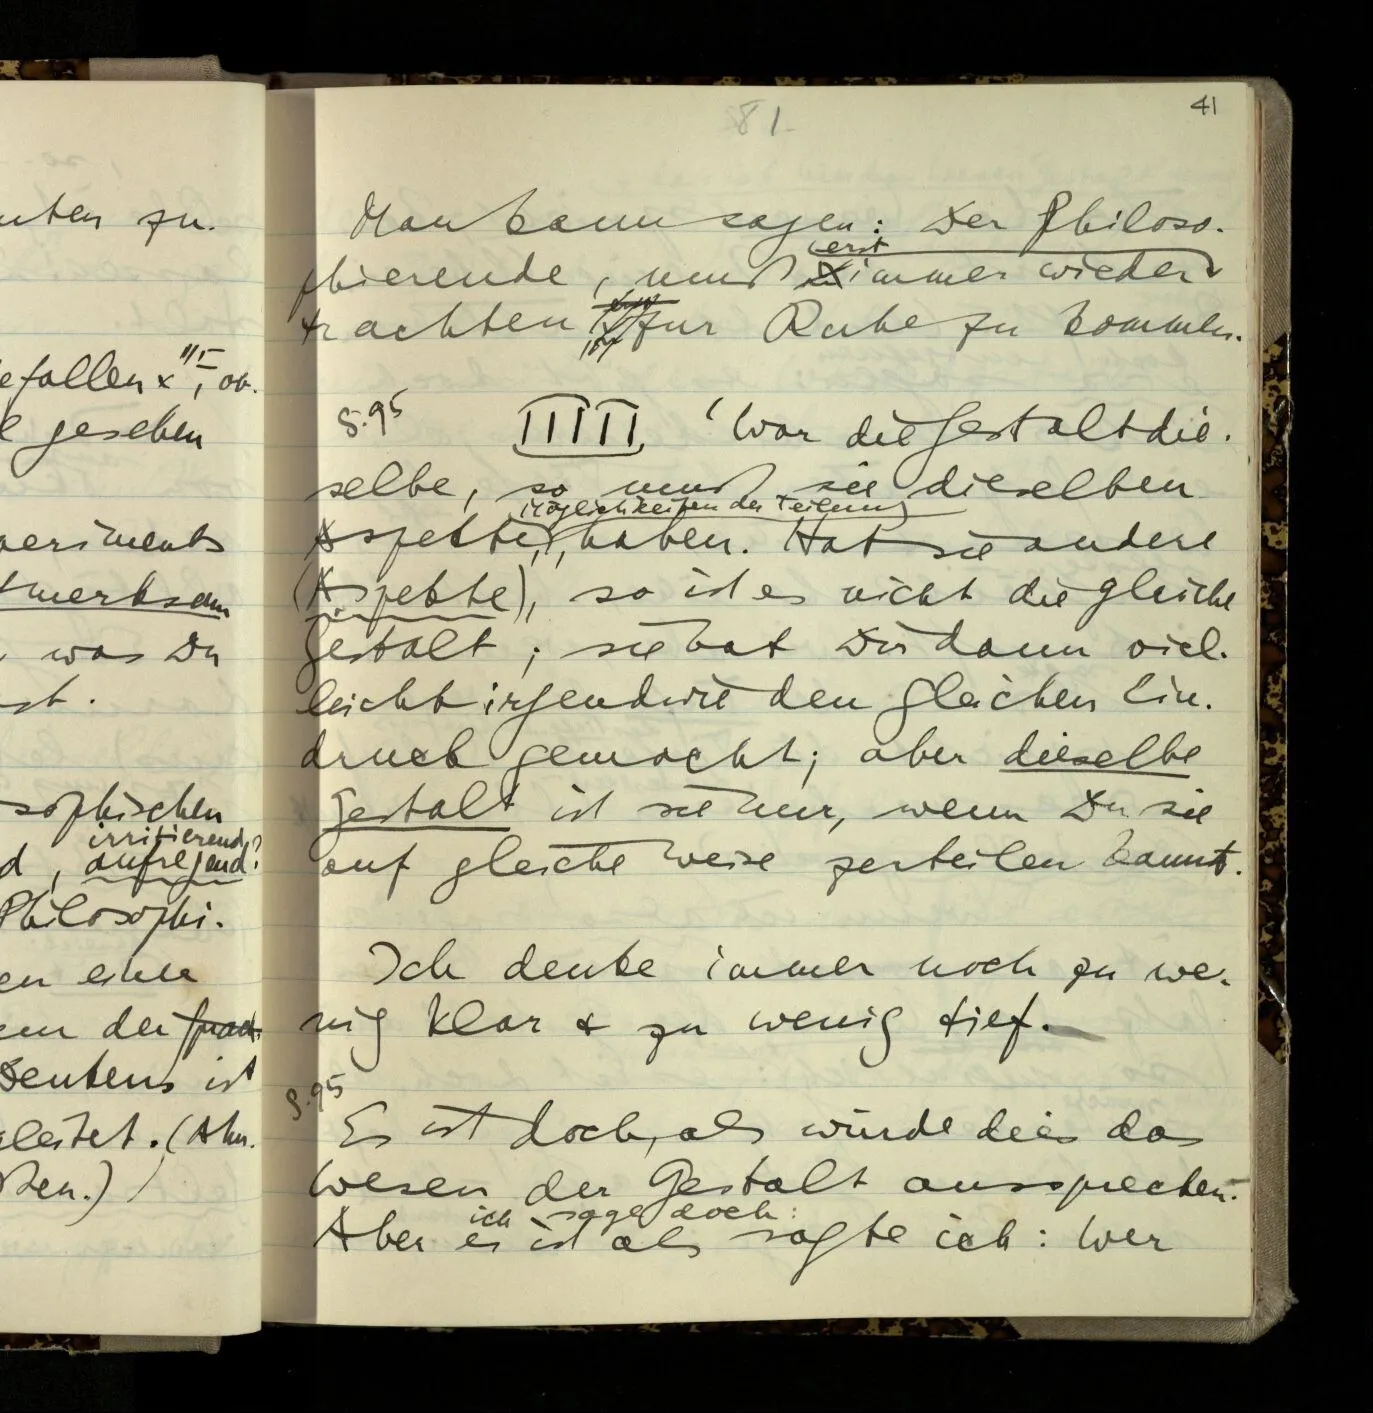 uten zu-
efallen x", ob-
e gesehen
periments
tmerksam
, was Du
st.
sophischen
irritierend
d, aufregend?
Philosophi-
en eine
em der
Denkens ist
gleitet. (Ahn-
ßen.)
81.
41
Man kann sagen: Der Philoso-
erst
phierende, muß immer wieder
trachten zur Ruhe zu kommen.
S.95 'War die Gestalt die-
selbe, so muß sie dieselben
Möglichkeiten der Teilung
Aspekte, haben. Hat sie andere
(Aspekte), so ist es nicht die gleiche
Gestalt; sie hat Dir dann viel-
leicht irgendwie den gleichen Ein-
druck gemacht; aber dieselbe
Gestalt ist sie nur, wenn Du sie
auf gleiche Weise zerteilen kannst.
Ich denke immer noch zu we-
nig klar & zu wenig tief.
S.95
Es ist doch, als würde dies das
Wesen der Gestalt aussprechen.
ich sage doch:
Aber es ist als sagte ich: Wer